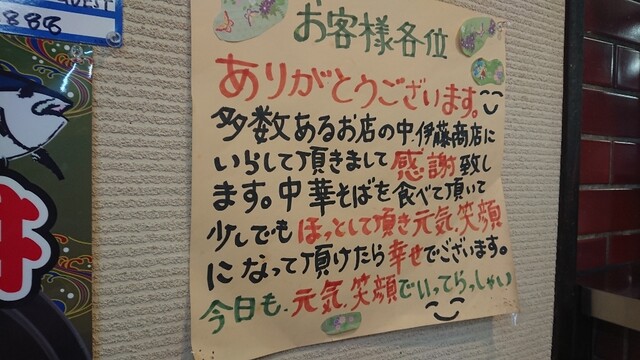 お客様各位
ありがとうございます。
多数あるお店の中.伊藤商店に
いらして頂きまして感謝致し
ます。中華そばを食べて頂いて
少しでもほっとして頂き元気.笑顔
になって頂けたら幸せでございます。
今日も.元気.笑顔でいってらっしゃい
丼